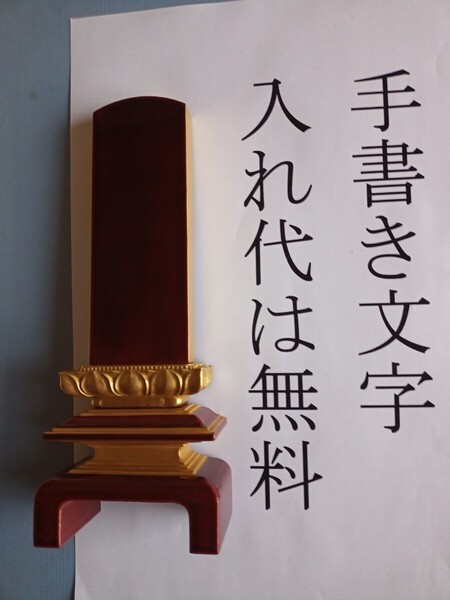 手書き文字
入れ代は無料